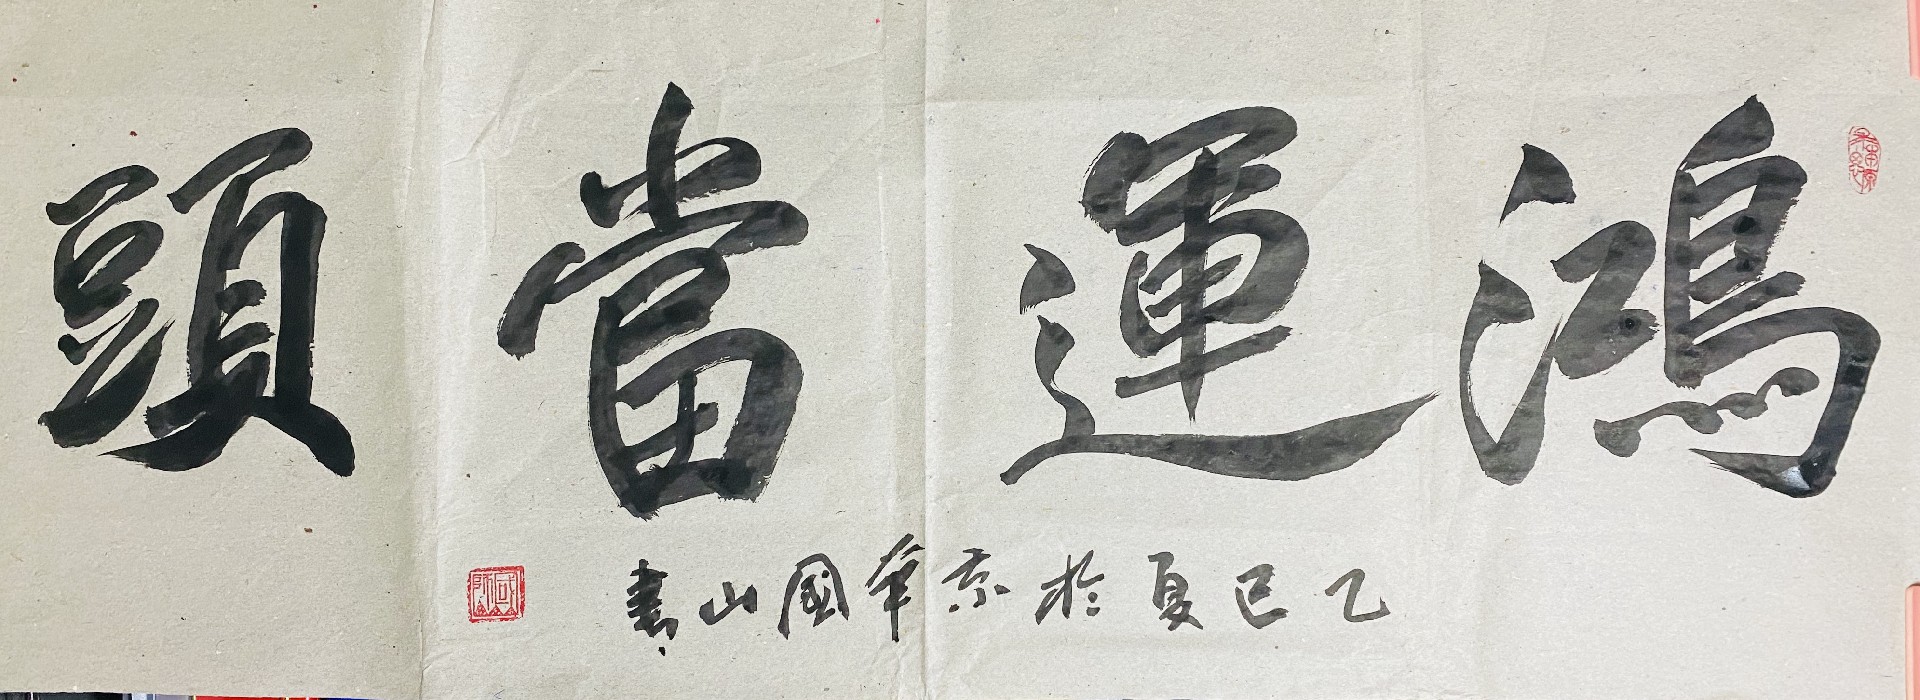 鴻運當頭
乙巳夏於京華國山書